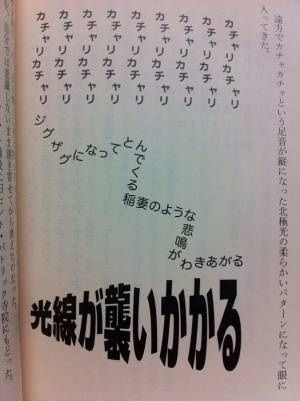 遠方でカチャカチャという足音が縦になった北極光の柔らかいパターンになって眼に
入ってきた。
カチャリカチャリ
カチャリカチャリ
カチャリカチャリ
カチャリカチャリ
カチャリカチャリ
カチャリカチャリ
カチャリカチャリ
カチャリカチャリ
カチャリカチャリ
ジグザグになってとんでくる稲妻のような悲鳴がわきあがる
光線が襲いかかる
自分では意識しないまま
パトリック寺院にもどった。